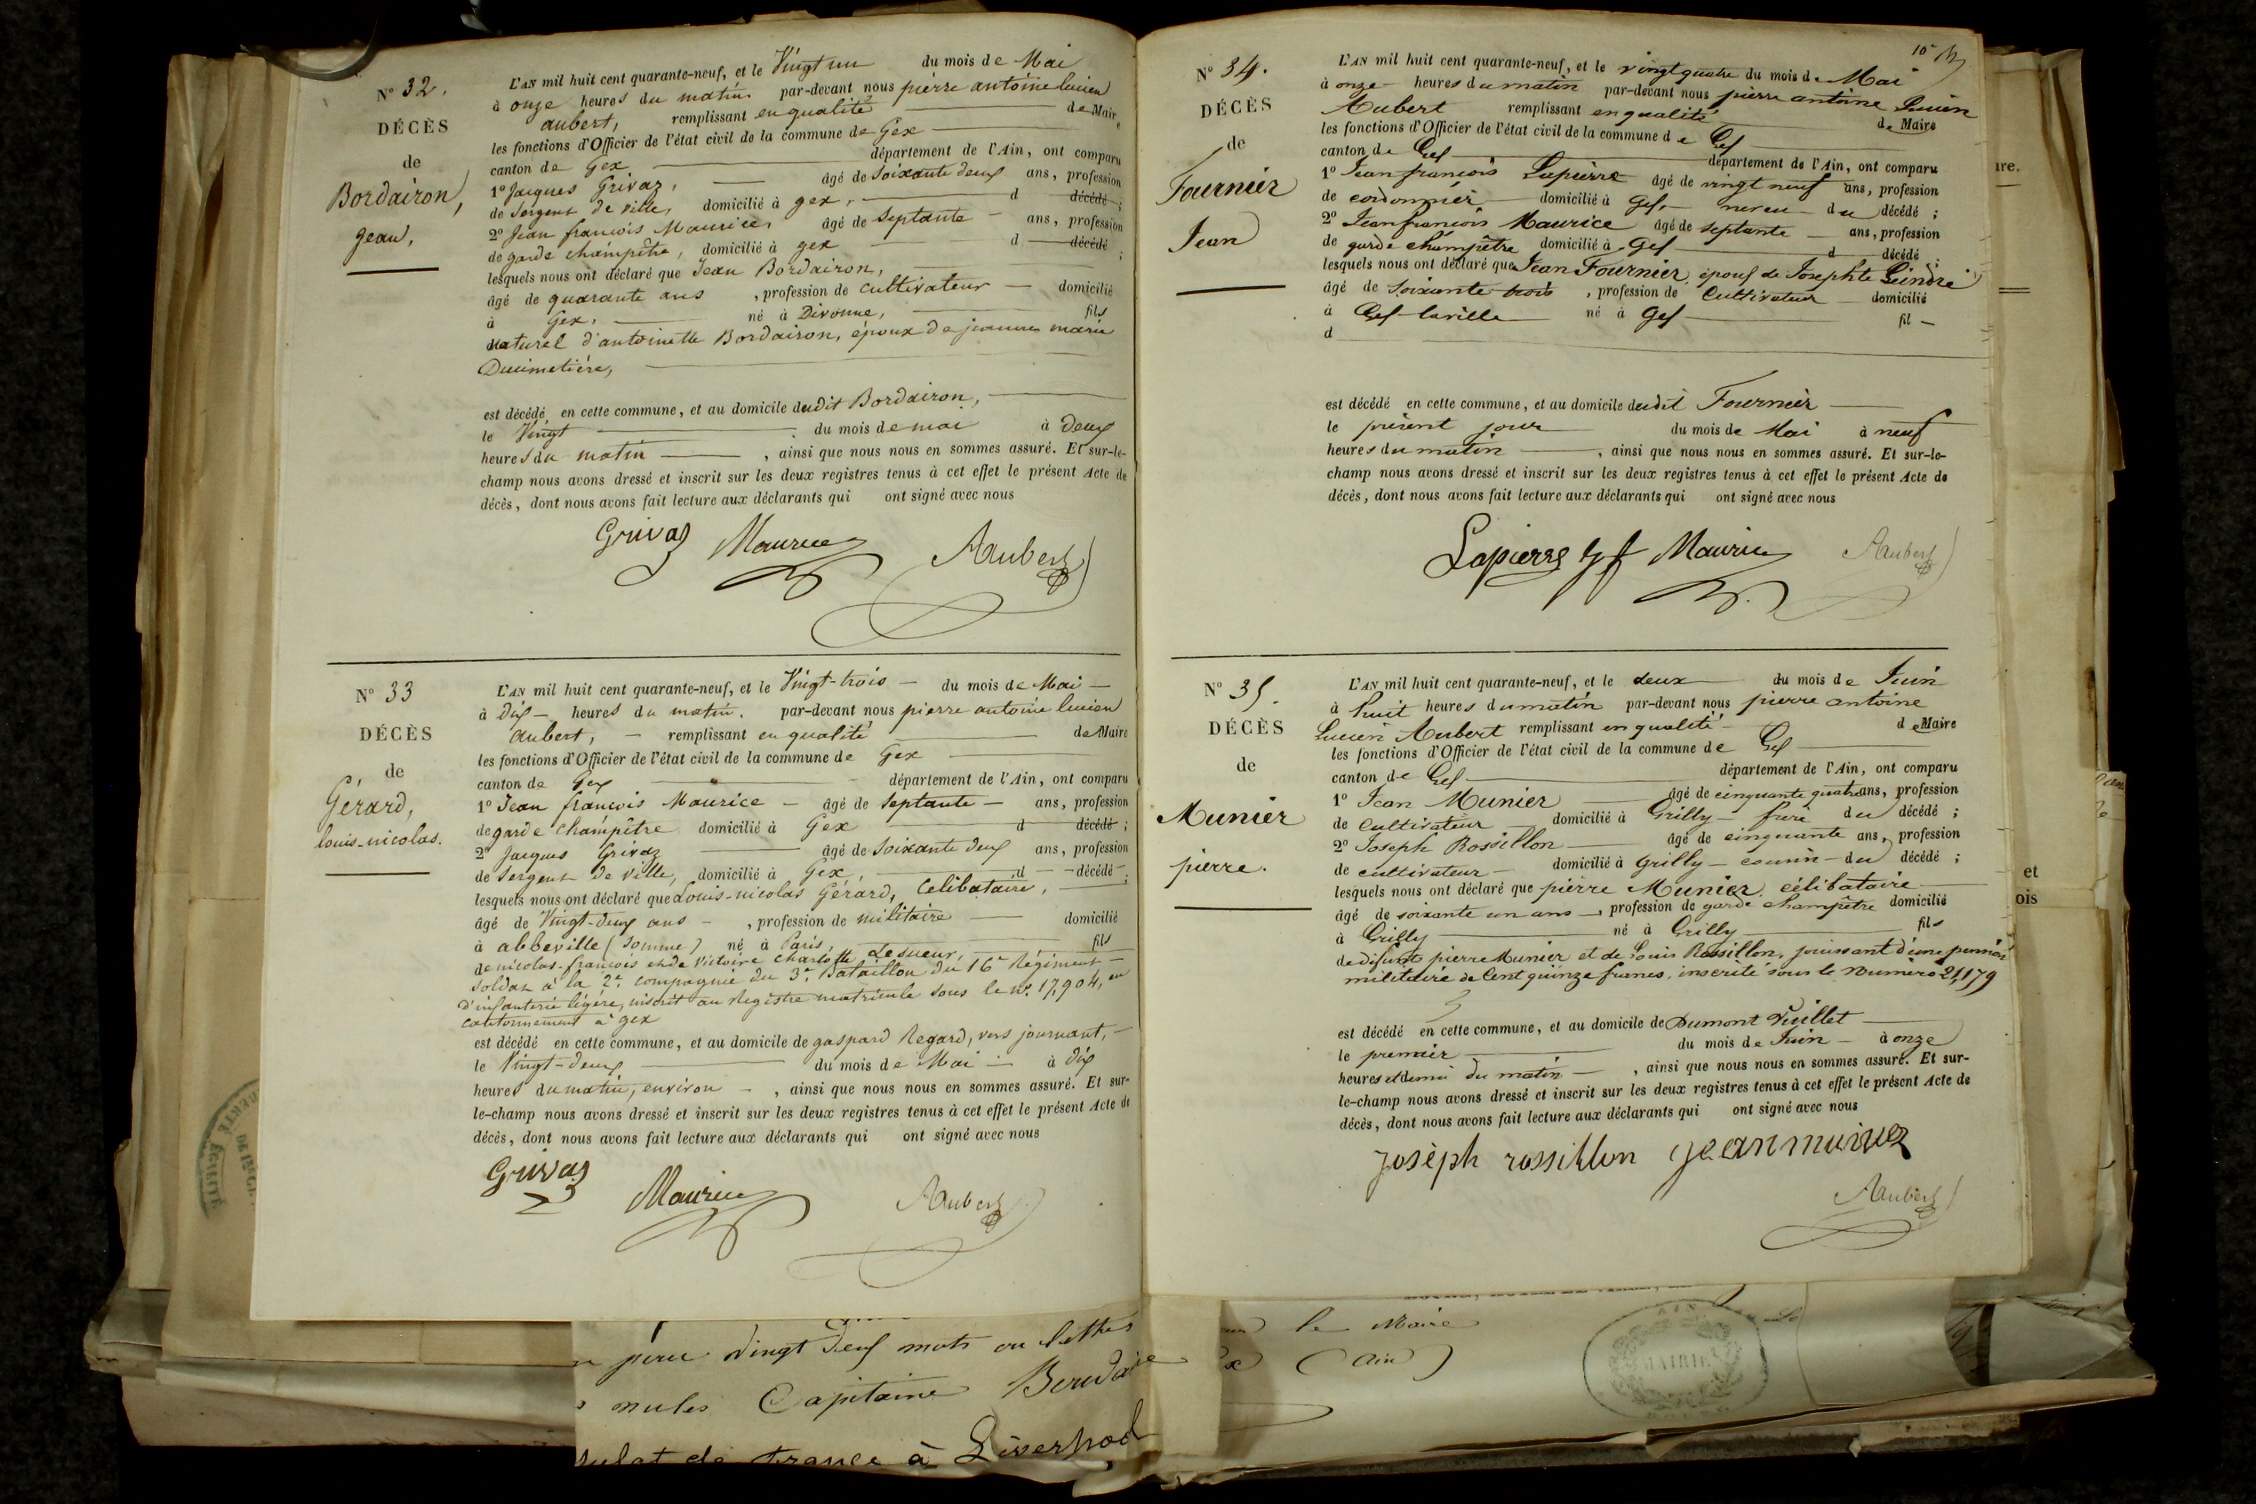 N° 32.
DÉCÈS
de
Bordairon,
Jean,
L'AN mil huit cent quarante-neuf, et le Vingt un du mois de Mai
à onze heures du matin par-devant nous pierre antoine lucien
aubert, remplissant en qualité de Maire
les fonctions d'Officier de l'état civil de la commune de Gex
canton de Gex département de l'Ain, ont comparu
1° Jacques Grivaz, âgé de soixante deux ans, profession
de Sergent de ville, domicilié à gex, d décédé ;
2° Jean françois Maurice, âgé de septante ans, profession
de garde champêtre, domicilié à gex d décédé ;
lesquels nous ont déclaré que Jean Bordairon,
âgé de quarante ans , profession de cultivateur domicilié
à Gex, né à Divonne, fils
naturel d'antoinette Bordairon, époux de jeanne marie
Ducimetière,
est décédé en cette commune, et au domicile dudit Bordairon,
le Vingt du mois de mai à deux
heures du matin , ainsi que nous nous en sommes assuré. Et sur-le-
champ nous avons dressé et inscrit sur les deux registres tenus à cet effet le présent Acte de
décès, dont nous avons fait lecture aux déclarants qui ont signé avec nous
Grivaz Maurice AAubert
N° 33
DÉCÈS
de
Gérard,
louis-nicolas.
L'AN mil huit cent quarante-neuf, et le Vingt-trois du mois de Mai
à dix heures du matin. par-devant nous pierre antoine lucien
aubert, remplissant en qualité de Maire
les fonctions d'Officier de l'état civil de la commune de Gex
canton de Gex département de l'Ain, ont comparu
1° Jean françois Maurice âgé de septante ans, profession
de garde champêtre domicilié à Gex d décédé ;
2° Jacques Grivaz âgé de soixante deux ans, profession
de Sergent de ville, domicilié à Gex, d décédé ;
lesquels nous ont déclaré que Louis-nicolas Gérard, Celibataire,
âgé de Vingt-deux ans , profession de militaire domicilié
à abbeville (Somme) né à Paris, fils
de nicolas-françois et de Victoire Charlotte Lesueur,
soldat à la 2e compagnie du 3e Bataillon du 16e Régiment
d'infanterie légère, inscrit au Registre matricule sous le n°. 17,904, en
cantonnement à gex
est décédé en cette commune, et au domicile de gaspard Regard, vers journant,
le Vingt-deux du mois de Mai à dix
heures du matin, environ , ainsi que nous nous en sommes assuré. Et sur-
le-champ nous avons dressé et inscrit sur les deux registres tenus à cet effet le présent Acte de
décès, dont nous avons fait lecture aux déclarants qui ont signé avec nous
Grivaz Maurice AAubert
N° 34.
DÉCÈS
de
Fournier
Jean
L'AN mil huit cent quarante-neuf, et le vingt quatre du mois de Mai
à onze heures du matin par-devant nous pierre antoine Lucien
Aubert remplissant en qualité de Maire
les fonctions d'Officier de l'état civil de la commune de Gex
canton de Gex département de l'Ain, ont comparu
1° Jean françois Lapierre âgé de vingt neuf ans, profession
de cordonnier domicilié à Gex, neveu du décédé ;
2° Jean françois Maurice âgé de septante ans, profession
de garde champêtre domicilié à Gex d décédé ;
lesquels nous ont déclaré que Jean Fournier, époux de Josephte Geindre
âgé de soixante-trois , profession de Cultivateur domicilié
à Gex-la ville né à Gex fil
d
est décédé en cette commune, et au domicile dudit Fournier
le présent jour du mois de Mai à neuf
heures du matin , ainsi que nous nous en sommes assuré. Et sur-le-
champ nous avons dressé et inscrit sur les deux registres tenus à cet effet le présent Acte de
décès, dont nous avons fait lecture aux déclarants qui ont signé avec nous
Lapierre jf Maurice AAubert
N° 35.
DÉCÈS
de
Munier
pierre.
L'AN mil huit cent quarante-neuf, et le deux du mois de Juin
à huit heures du matin par-devant nous pierre antoine
Lucien Aubert remplissant en qualité de Maire
les fonctions d'Officier de l'état civil de la commune de Gex
canton de Gex département de l'Ain, ont comparu
1° Jean Munier âgé de cinquante quatre ans, profession
de Cultivateur domicilié à Grilly frère du décédé ;
2° Joseph Rossillon âgé de cinquante ans, profession
de cultivateur domicilié à Grilly cousin du décédé ;
lesquels nous ont déclaré que pierre Munier, célibataire
âgé de soixante un ans , profession de garde champêtre domicilié
à Grilly né à Grilly fils
de défunts pierre Munier et de Louis Rossillon, jouissant d'une pension
militaire de Cent quinze francs, inscrite sous le numéro 21,179
est décédé en cette commune, et au domicile de Dumont Vuillet
le premier du mois de Juin à onze
heures et demi du matin , ainsi que nous nous en sommes assuré. Et sur-
le-champ nous avons dressé et inscrit sur les deux registres tenus à cet effet le présent Acte de
décès, dont nous avons fait lecture aux déclarants qui ont signé avec nous
joseph rossillon jean munier
AAubert
vingt deux mots ou lettres
nules Capitaine
de france à Liverpool
le Maire
(Ain)
MAIRIE
et
ois